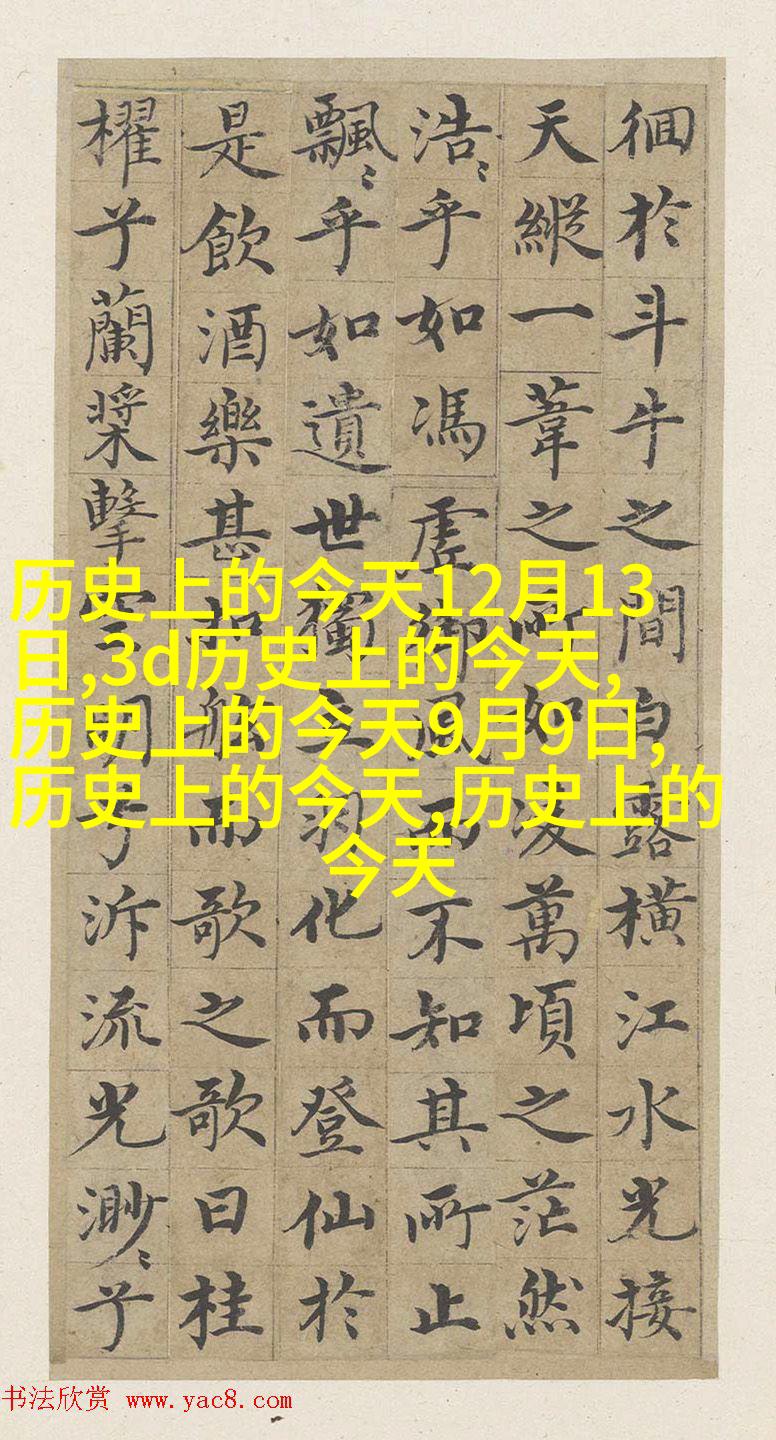 徊於斗牛之間白露橫江水光接
天縱一葦之所如淩萬頃之茫然
浩〻乎如馮虛御風而不知其所止
飄〻乎如遺世獨立羽化而登仙於
是飲酒樂甚扣舷而歌之歌曰桂
櫂兮蘭槳擊空明兮泝流光渺〻兮
历史上的今天12月13
日,3d历史上的今天,
历史上的今天9月9日,
历史上的今天,历史上的
今天
书法欣赏 www.yac8.com